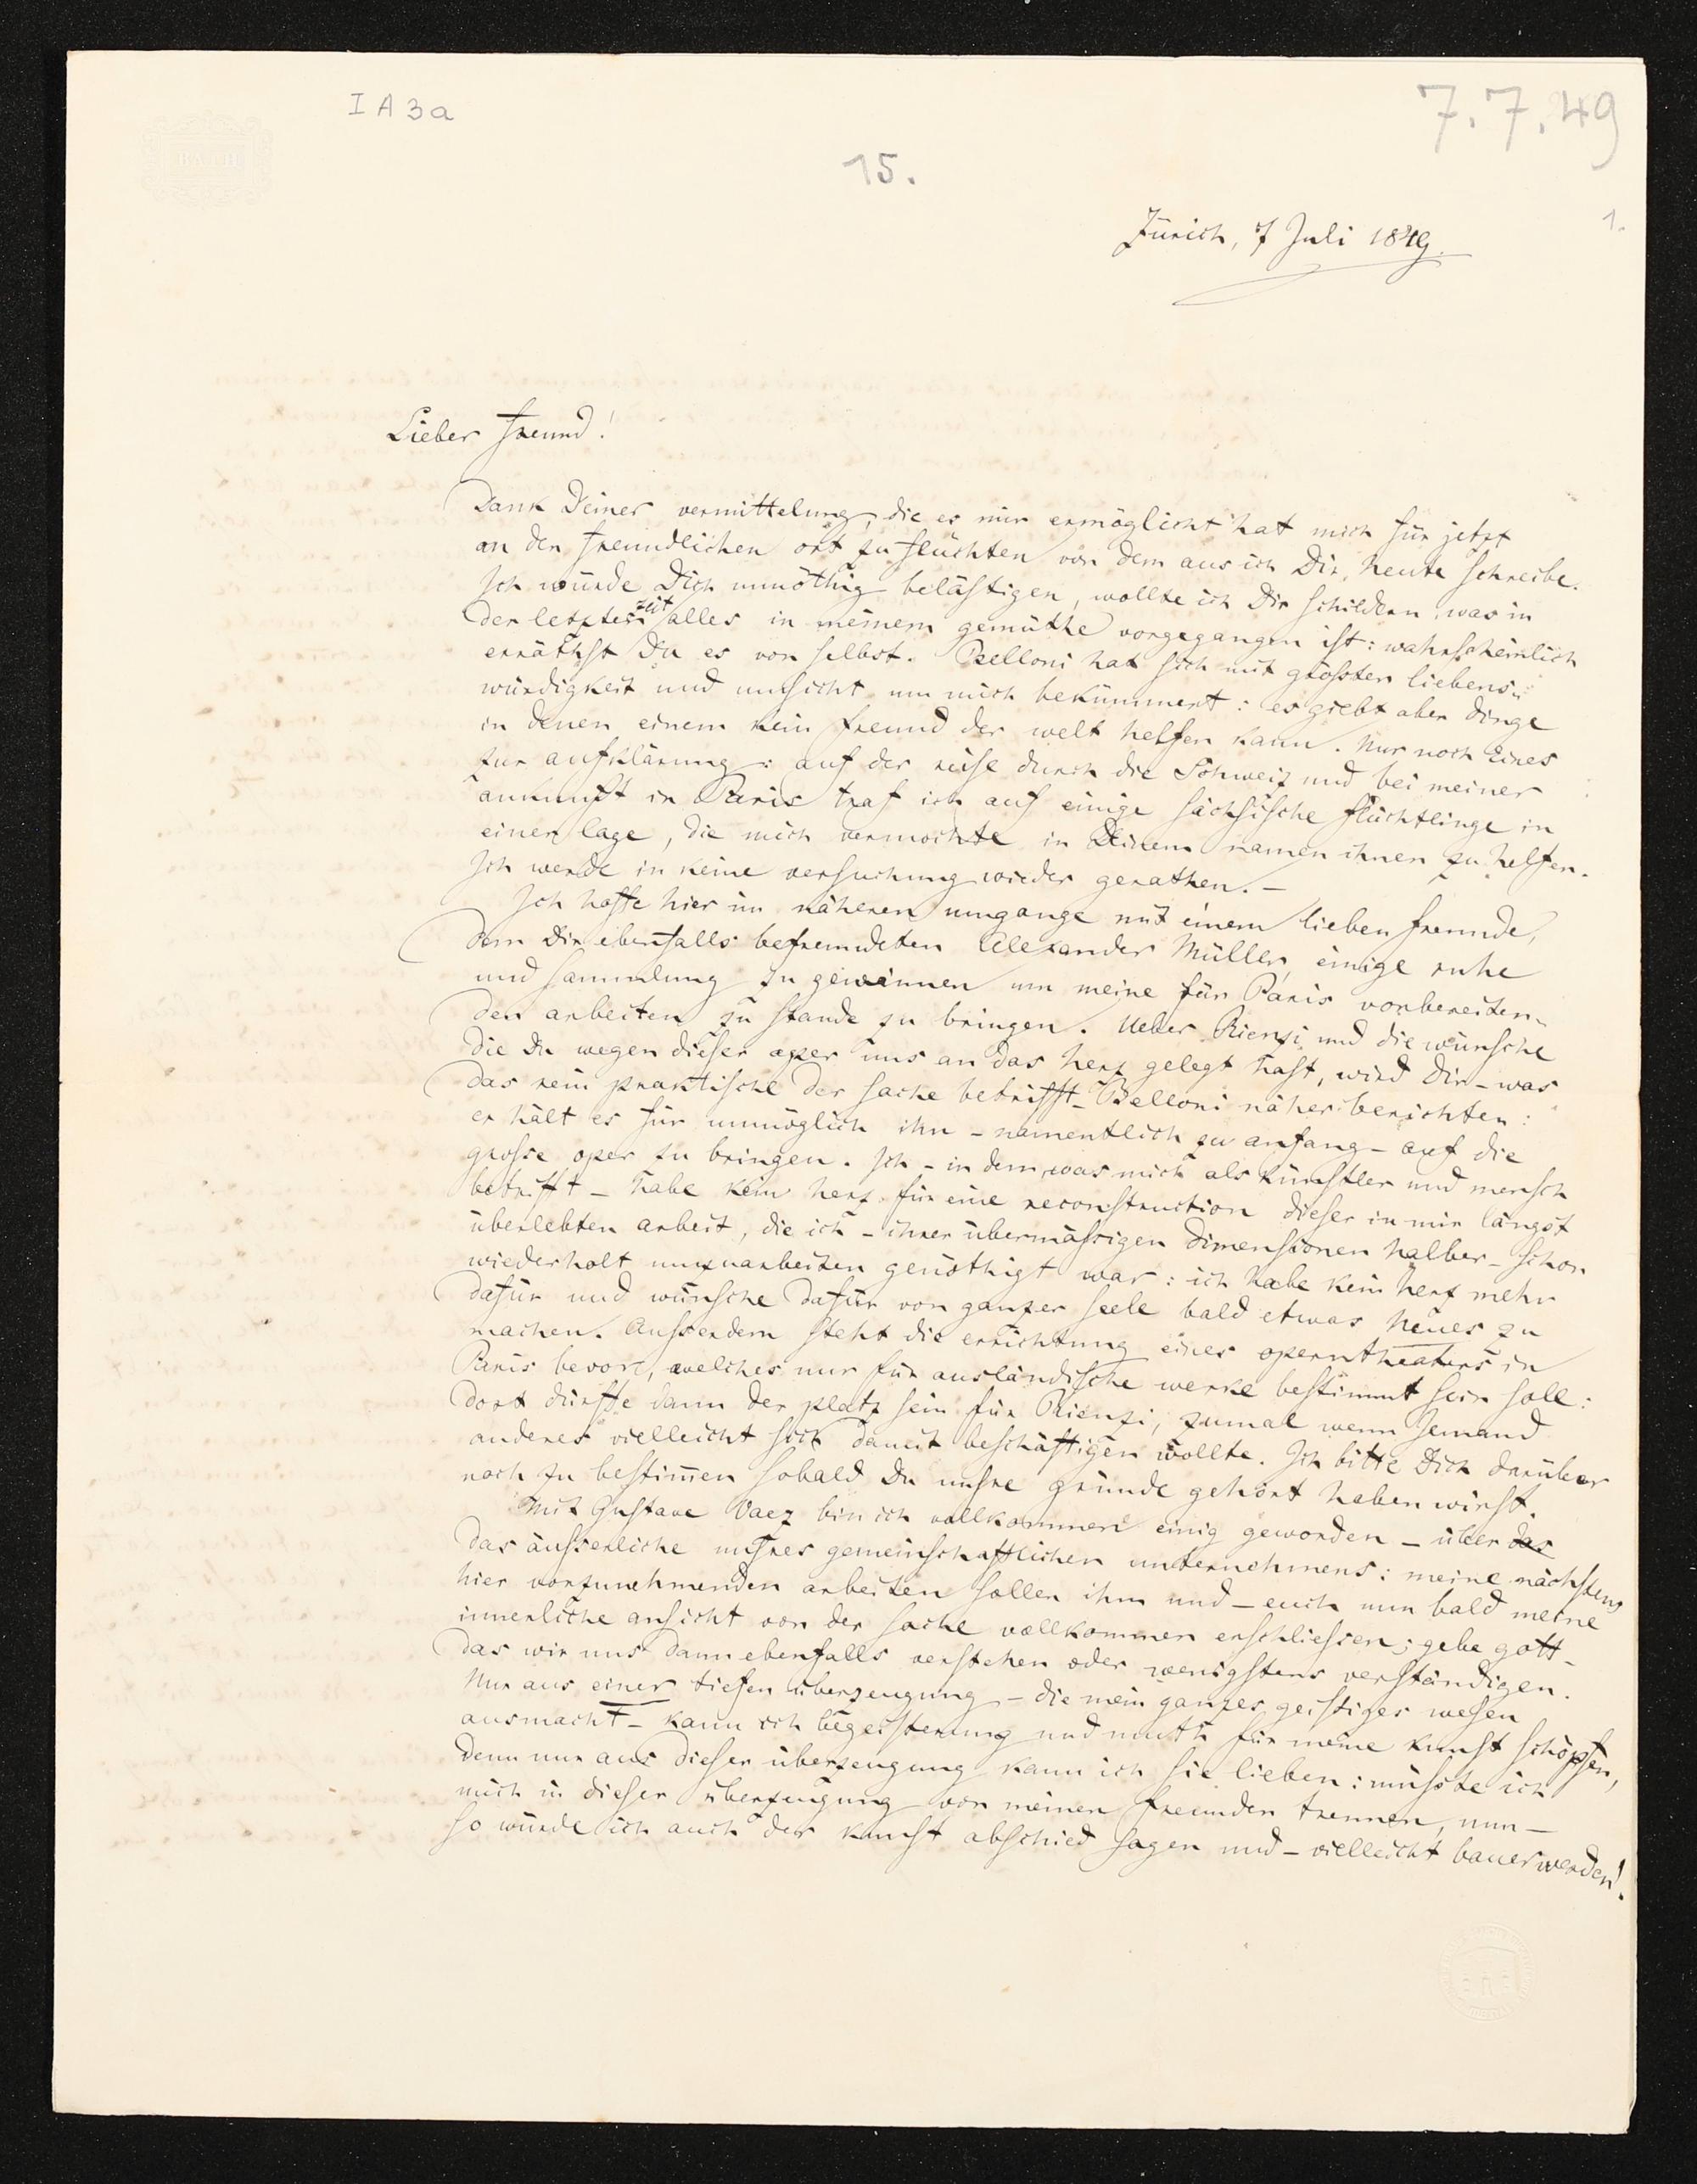 I A 3a
7.7.49
15.
1.
BATH
Zürich, 7 Juli 1849.
Lieber Freund!
Dank Deiner vermittelung, die es mir ermöglicht hat mich für jetzt
an den freundlichen ort zu flüchten von dem aus ich Dir heute schreibe.
Ich würde Dich unnöthig belästigen, wollte ich Dir schildern, was in
der letzten zeit alles in meinem gemüthe vorgegangen ist: wahrscheinlich
erräthst Du es von selbst. Belloni hat sich mit grösster liebens-
würdigkeit und umsicht um mich bekümmert: es giebt aber dinge
in denen einem kein freund der welt helfen kann. Nur noch Eines
zur aufklärung: auf der reise durch die Schweiz und bei meiner
ankunft in Paris traf ich auf einige sächsische flüchtlinge in
einer lage, die mich vermochte in Deinem namen ihnen zu helfen.
Ich werde in keine versuchung wieder gerathen. –
Ich hoffe hier im näheren umgange mit einem lieben freunde,
dem Dir ebenfalls befreundeten Alexander Müller, einige ruhe
und sammlung zu gewinnen um meine für Paris vorbereiten-
den arbeiten zu stande zu bringen. Ueber Rienzi und die wünsche
die Du wegen dieser oper uns an das herz gelegt hast, wird Dir – was
das rein praktische der sache betrifft – Belloni näher berichten:
er hält es für unmöglich ihn – namentlich zu anfang – auf die
grosse oper zu bringen. Ich – in dem was mich als künstler und mensch
betrifft – habe kein herz für eine reconstruction dieser in mir längst
überlebten arbeit, die ich – ihrer übermässigen dimensionen halber – schon
wiederholt umzuarbeiten genöthigt war: ich habe kein herz mehr
dafür und wünsche dafür von ganzer seele bald etwas Neues zu
machen. Ausserdem steht die errichtung eines operntheaters in
Paris bevor, welches nur für ausländische werke bestimmt sein soll:
dort dürfte dann der platz sein für Rienzi, zumal wenn Jemand
anderes vielleicht sich damit beschäftigen wollte. Ich bitte Dich darüber
noch zu bestimmen sobald Du unsre gründe gehört haben wirst.
Mit Gustave Vaez bin ich vollkommen einig geworden – über das
das äusserliche unsres gemeinschaftlichen unternehmens: meine nächstens
hier vorzunehmenden arbeiten sollen ihm und – euch nun bald meine
innerliche ansicht von der sache vollkommen erschliessen; gebe gott –
das wir uns dann ebenfalls verstehen oder wenigstens verständigen.
Nur aus einer tiefen überzeugung – die mein ganzes geistiges wesen
ausmacht – kann ich begeisterung und muth für meine kunst schöpfen,
denn nur aus dieser überzeugung kann ich sie lieben: müsste ich
mich in dieser überzeugung von meinen freunden trennen, nun –
so würde ich auch der kunst abschied sagen und – vielleicht bauer werden!